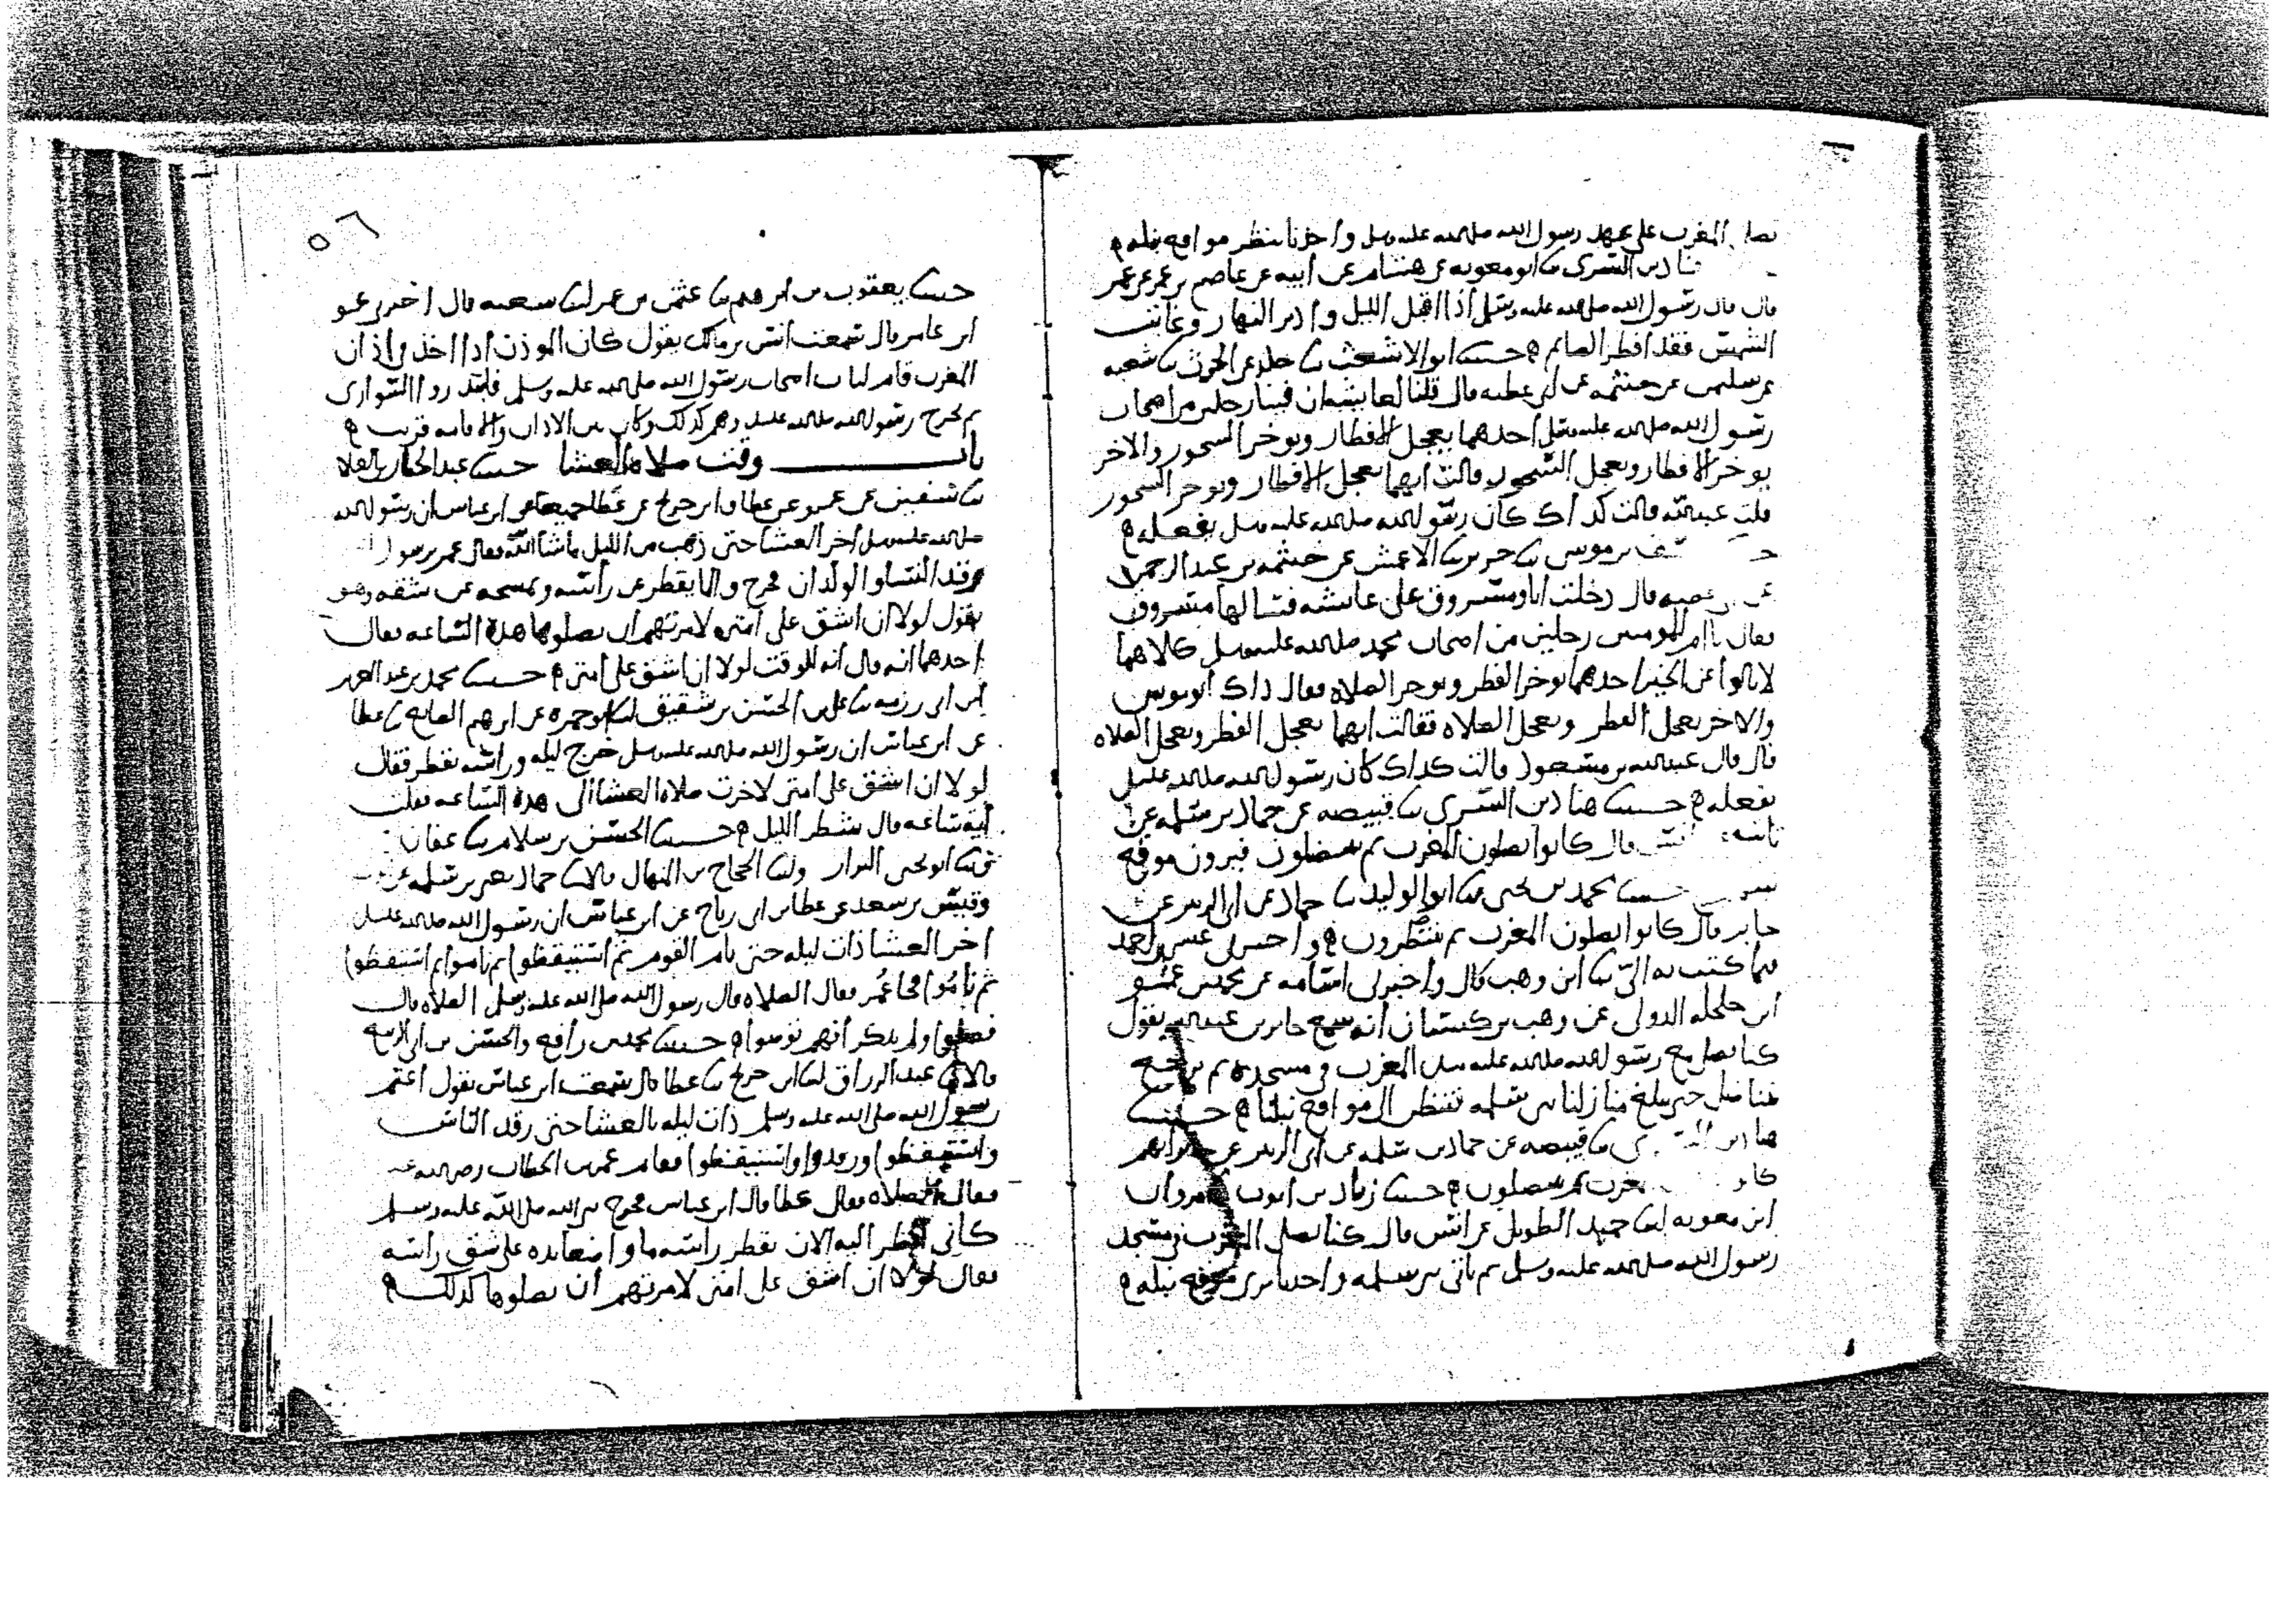 نصلي المغرب على عهد رسول الله صلى الله عليه وسلم واحدنا ينظر مواقع نبله
نا دبن السري نا ابو معويه عن هشام عن ابيه عن عاصم بن عمر عن عمر
قال قال رسول الله صلى الله عليه وسلم اذا اقبل الليل وادبر النهار وغابت
الشمس فقد افطر الصائم حدثنا ابو الاشعث نا خلد عن الحرث نا شعبه
عن سليمن عن خيثمه عن ابي عطيه قال قلنا لعايشه ان فينا رجلين من اصحاب
رسول الله صلى الله عليه وسلم احدهما يعجل الافطار ويوخر السحور والاخر
يوخر الافطار ويعجل السحور قالت ايهما يعجل الافطار ويوخر السحور
قلت عبدالله قالت كذاك كان رسول الله صلى الله عليه وسلم يفعله
سف بن موسى نا جرير نا الاعمش عن خيثمه بن عبد الرحمن
عن عطيه قال دخلت انا ومسروق على عائشه فسالها مسروق
فقال يا ام المومنين رجلين من اصحاب محمد صلى الله عليه وسلم كلاهما
لا يالوا عن الخير احدهما يوخر الفطر ويوخر الصلاه فقال ذاك ابو موسى
والاخر يعجل الفطر ويعجل الصلاه فقالت ايهما يعجل الفطر ويعجل الصلاه
قال قال عبدالله بن مسعود قالت كذاك كان رسول الله صلى الله عليه وسلم
يفعله حدثنا هناد بن السري نا قبيصه عن حماد بن سلمه عن
ثابت انس قال كانوا يصلون المغرب ثم ينتضلون فيرون موقع
حدثنا محمد بن يحيى نا ابو الوليد نا حماد عن ابي الزبير عن
جابر قال كانوا يصلون المغرب ثم ينتظرون واخبرني عيسى بن احمد
فيما كتب به الي نا ابن وهب قال واخبرني اسامه عن محمد بن عمرو
ابن حلحله الدولي عن وهب بن كيسان انه سمع جابر بن عبدالله يقول
كنا نصلي مع رسول الله صلى الله عليه وسلم المغرب في مسجده ثم نرجع
فنتناضل حتى نبلغ منازلنا بني سلمه ننظر الى مواقع نبلنا حدثنا
هناد بن السري نا قبيصه عن حماد بن سلمه عن ابي الزبير عن جابر انهم
كانو المغرب ثم ينتضلون حدثنا زياد بن ايوب نا مروان
ابن معويه انا حميد الطويل عن انس قال كنا نصلي المغرب في مسجد
رسول الله صلى الله عليه وسلم ثم ناتي بني سلمه واحدنا يرى موقع نبله
٥٦
حدثنا يعقوب بن ابرهيم نا عثمن بن عمر انا شعبه قال اخبرني عمرو
ابن عامر قال سمعت انس بن مالك يقول كان الموذن اذا اخذ في اذان
المغرب قام لباب اصحاب رسول الله صلى الله عليه وسلم فابتدروا السواري
ثم يخرج رسول الله صلى الله عليه وسلم وهم كذلك وكان بين الاذان والاقامه قريب
باب وقت صلاه العشا حدثنا عبد الجبار بن العلا
نا سفين عن عمرو عن عطا وابن جريج عن عطا جميعا عن ابن عباس ان رسول الله
صلى الله عليه وسلم اخر العشا حتى ذهب من الليل ما شا الله فقال عمر يرسول
رقد النسا والولدان فخرج والما يقطر عن راسه ويمسحه عن شقه وهو
يقول لولا ان اشق على امتي لامرتهم ان يصلوها هذه الساعه فقال
احدهما انه قال انه للوقت لولا ان اشق على امتي حدثنا محمد بن عبد العزيز
ابن ابي رزمه نا علي بن الحسن بن شقيق انا ابو حمزه عن ابرهيم الصائغ نا عطا
عن ابن عباس ان رسول الله صلى الله عليه وسلم خرج ليله وراسه يقطر فقال
لولا ان اشق على امتي لاخرت صلاه العشا الى هذه الساعه فقلت
ايه ساعه قال شطر الليل حدثنا الحسن بن سلام نا عفان
نا ابو يحيى البزار ونا الحجاج بن المنهال قالا نا حماد يعني بن سلمه عن
وقيس بن سعد عن عطا بن ابي رباح عن ابن عباس ان رسول الله صلى الله عليه وسلم
اخر العشا ذات ليله حتى نام القوم ثم استيقظوا ثم ناموا ثم استيقظوا
ثم ناموا فجا عمر فقال الصلاه قال رسول الله صلى الله عليه وسلم الصلاه قال
فصلوا ولم يذكر انهم توضوا حدثنا محمد بن رافع والحسن بن ابي الربيع
قالا نا عبد الرزاق انا ابن جريج نا عطا قال سمعت ابن عباس يقول اعتم
رسول الله صلى الله عليه وسلم ذات ليله بالعشا حتى رقد الناس
واستيقظوا ورقدوا واستيقظوا فقام عمر بن الخطاب رضي الله عنه
فقال الصلاه فقال عطا قال ابن عباس فخرج نبي الله صلى الله عليه وسلم
كاني انظر اليه الان يقطر راسه ما واضعا يده على شق راسه
فقال لولا ان اشق على امتي لامرتهم ان يصلوها كذلك